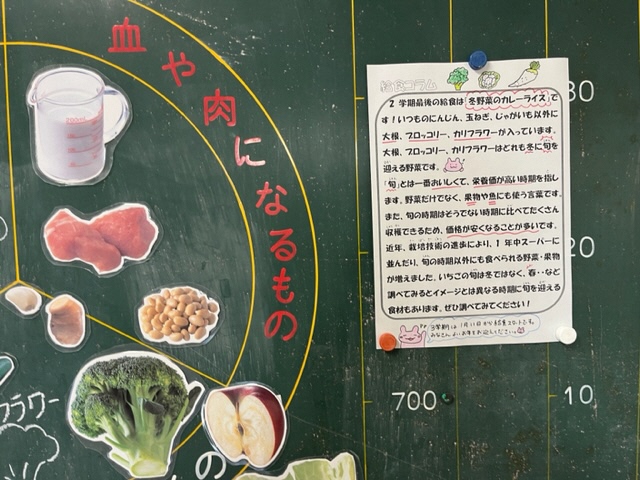 血や肉になるもの
給食コラム
2学期最後の給食は「冬野菜のカレーライス」で
す！いつものにんじん、玉ねぎ、じゃがいも以外に
大根、ブロッコリー、カリフラワーが入っています。
大根、ブロッコリー、カリフラワーはどれも冬に旬を
迎える野菜です。
「旬」とは一番おいしくて、栄養価が高い時期を指し
ます。野菜だけでなく、果物や魚にも使う言葉です。
また、旬の時期はそうでない時期に比べてたくさん
収穫できるため、価格が安くなることが多いです。
近年、栽培技術の進歩により、1年中スーパーに
並んだり、旬の時期以外にも食べられる野菜・果物
が増えました。いちごの旬は冬ではなく、春‥など
調べてみるとイメージとは異なる時期に旬を迎える
食材もあります。ぜひ調べてみてください！
30
20
700
10
フラワー
の